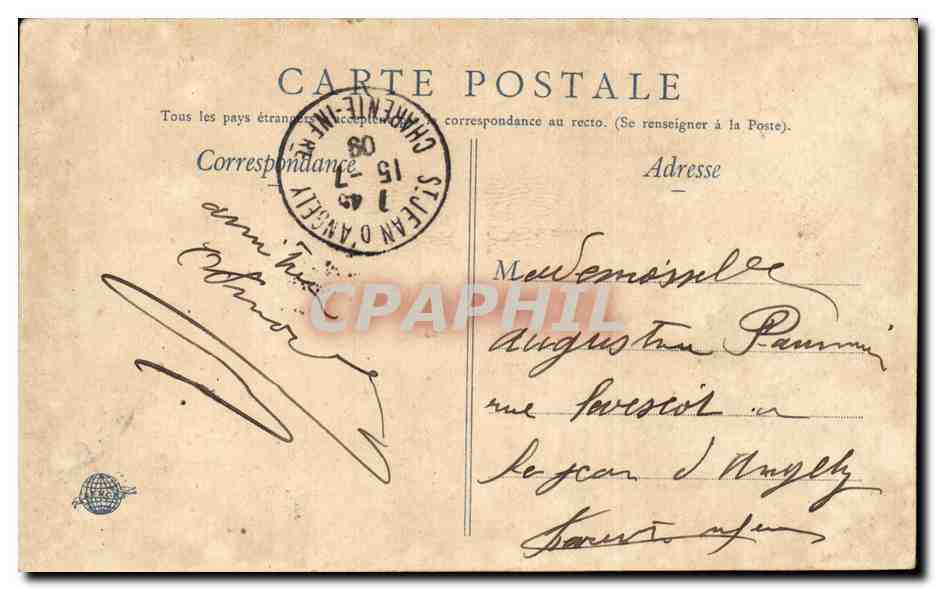 CARTE POSTALE
Tous les pays étrangers n'acceptent pas la correspondance au recto. (Se renseigner à la Poste).
Correspondance
Adresse
ST JEAN D'ANGELY
CHARENTE-INFRE
1 45
15 -7
09
amitiés
Mademoiselle
Augustine
rue
St Jean d'Angely
Charente infre
CPAPHIL